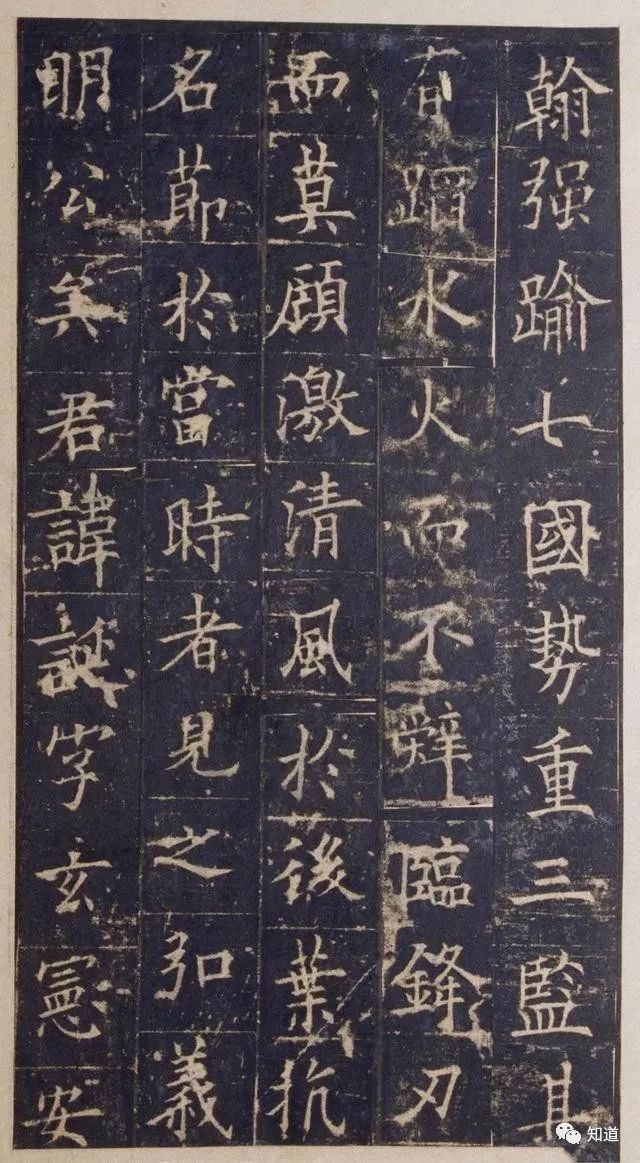 翰强踰七國勢重三監其
有蹈水火而不辭臨鋒刃
而莫顧激清風於後葉抗
名節於當時者見之弘義
明公矣君諱誕字玄憲安
知道